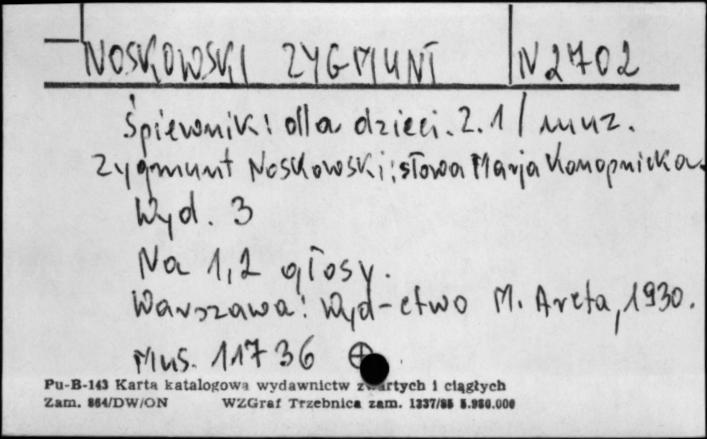 NOSKOWSKI ZYGMUNT N 2702
Śpiewnik: dla dzieci. Z. 1 / muz.
Zygmunt Noskowski; słowa Marja Konopnicka.
Wyd. 3
Na 1, 2 głosy.
Warszawa: Wyd-ctwo M. Arcta, 1930.
Mus. 11736
Pu-B-143 Karta katalogowa wydawnictw zwartych i ciągłych
Zam. 864/DW/ON WZGraf Trzebnica zam. 1337/85 5.980.000